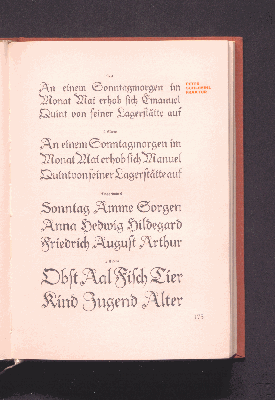 An einem Sonntagmorgen im
Monat Mai erhob sich Emanuel
Quint von seiner Lagerstätte auf
An einem Sonntagmorgen im
Monat Mai erhob sich Manuel
Quint von seiner Lagerstätte auf
Sonntag Amme Sorgen
Anna Hedwig Hildegard
Friedrich August Arthur
Obst Aal Fisch Tier
Kind Jugend Alter